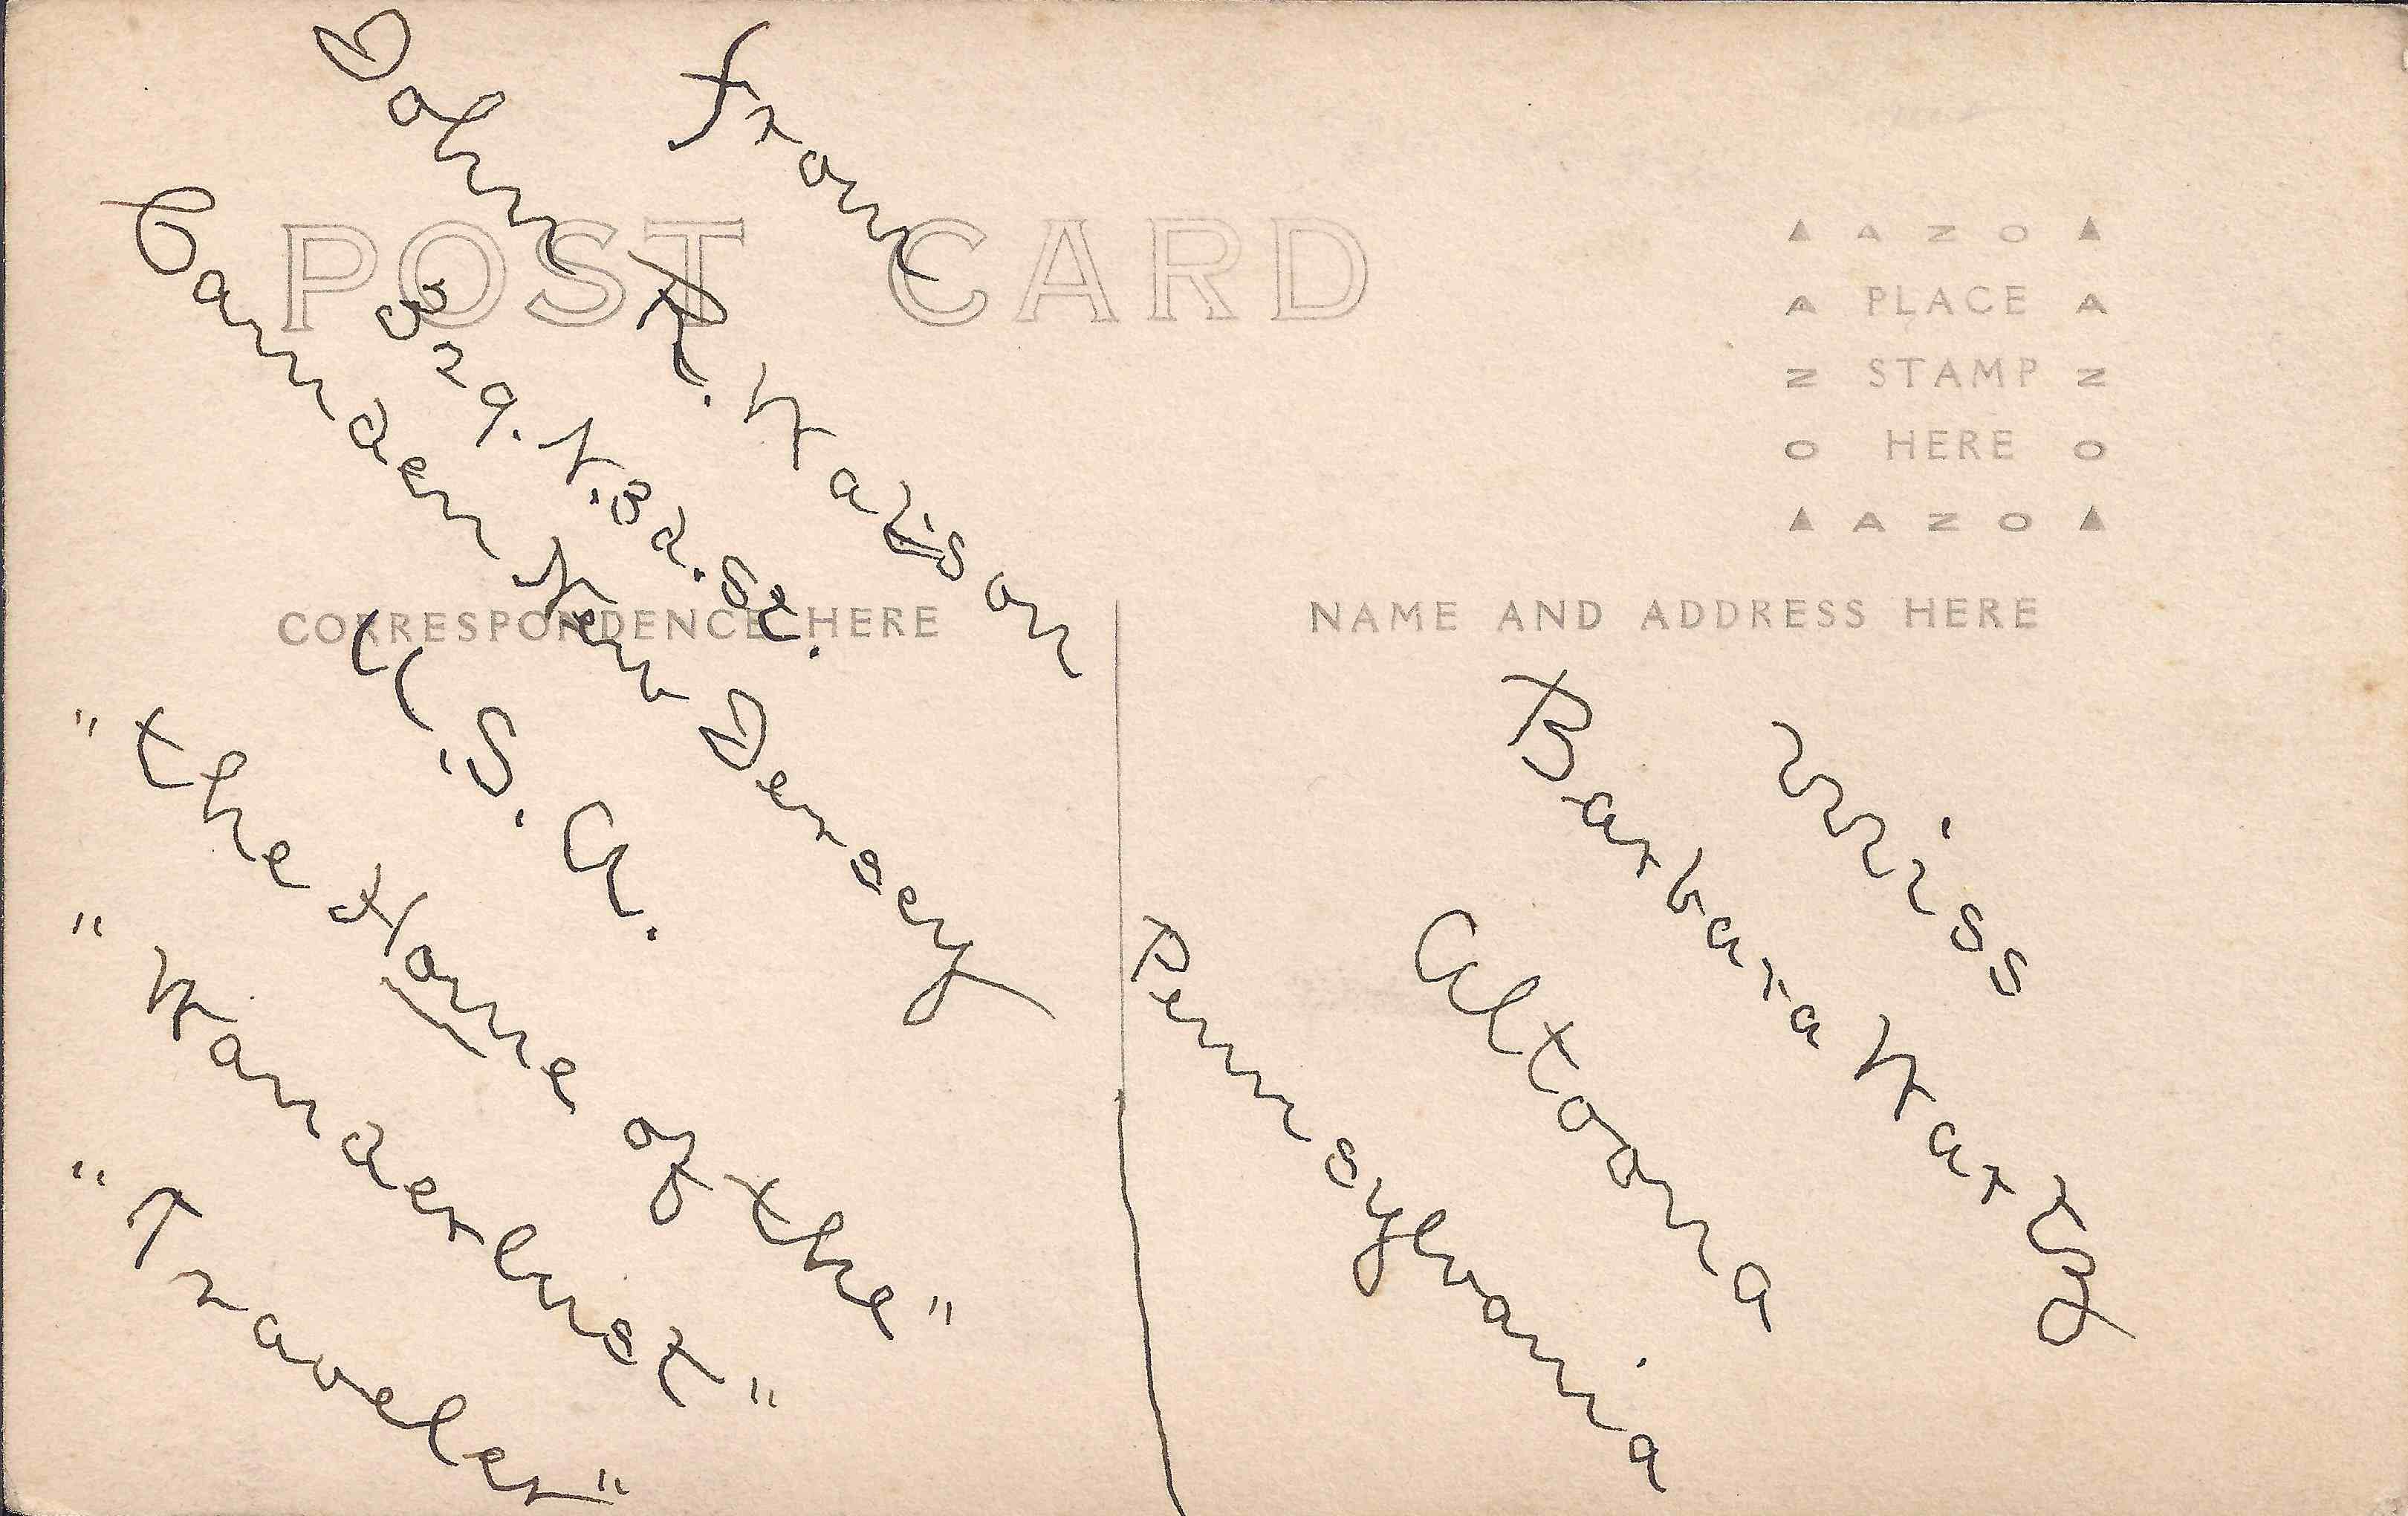 POST CARD
AZO
PLACE
STAMP
HERE
AZO
CORRESPONDENCE HERE
NAME AND ADDRESS HERE
From
John R.
329. N. 3d. St.
Camden New Jersey
U.S.A.
"The Home of the"
"Wanderlust"
"Traveler"
Miss
Barbara
Altoona
Pennsylvania